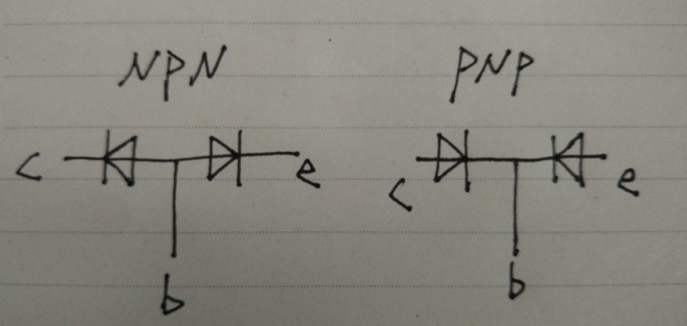 NPN PNP
c e c e
b b